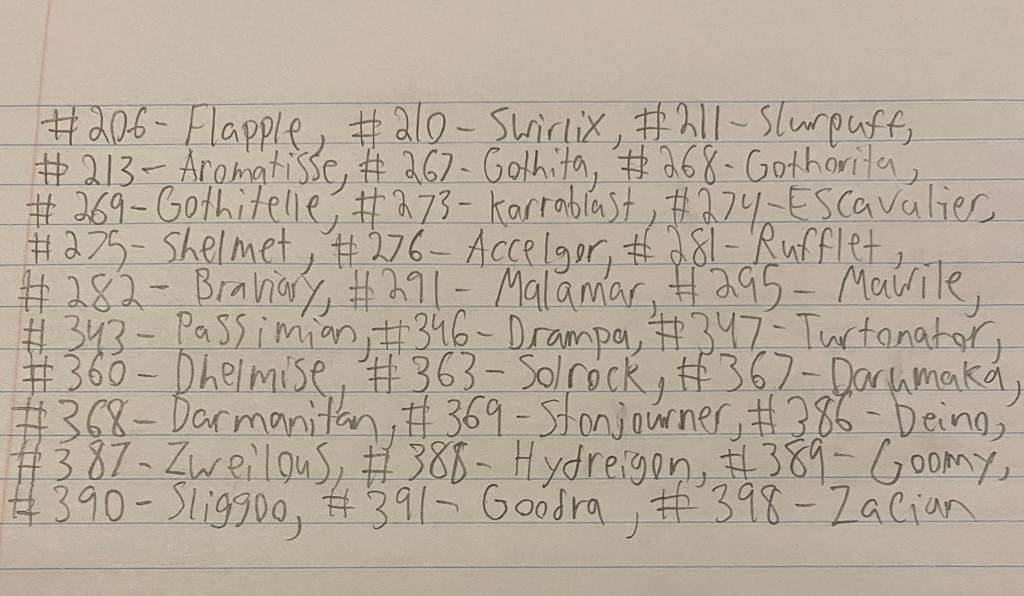 #206- Flapple, #210- Swirlix, #211-Slurpuff,
#213- Aromatisse, #267- Gothita, #268-Gothorita,
#269-Gothitelle, #273- Karrablast, #274-Escavalier,
#275- Shelmet, #276- Accelgor, #281- Rufflet,
#282- Braviary, #291- Malamar, #295- Mawile,
#343- Passimian, #346- Drampa, #347- Turtonator,
#360- Dhelmise, #363- Solrock, #367- Darumaka,
#368- Darmanitan, #369-Stonjourner, #386- Deino,
#387- Zweilous, #388- Hydreigon, #389- Goomy,
#390- Sliggoo, #391- Goodra, #398- Zacian